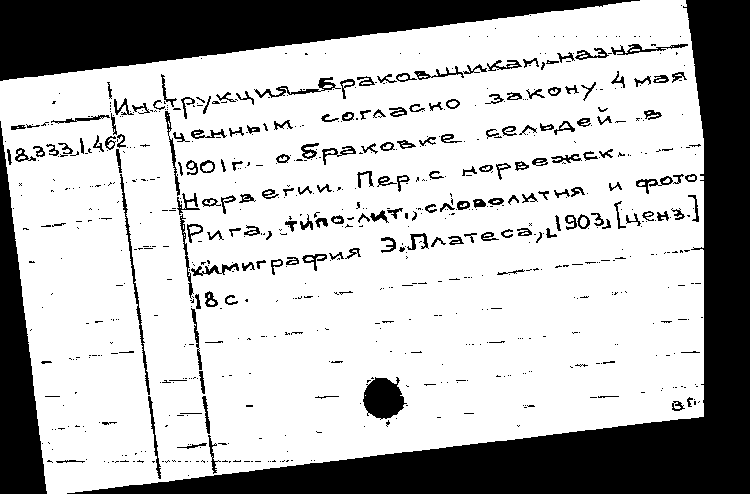 Инструкция браковщикам, назна-
ченным согласно закону 4 мая
18.333.1.462
1901г. о браковке сельдей в
Норвегии. Пер. с норвежск.
Рига, типо-лит., словолитня и фото-
химиграфия Э. Платеса, 1903, [ценз.]
18 с.